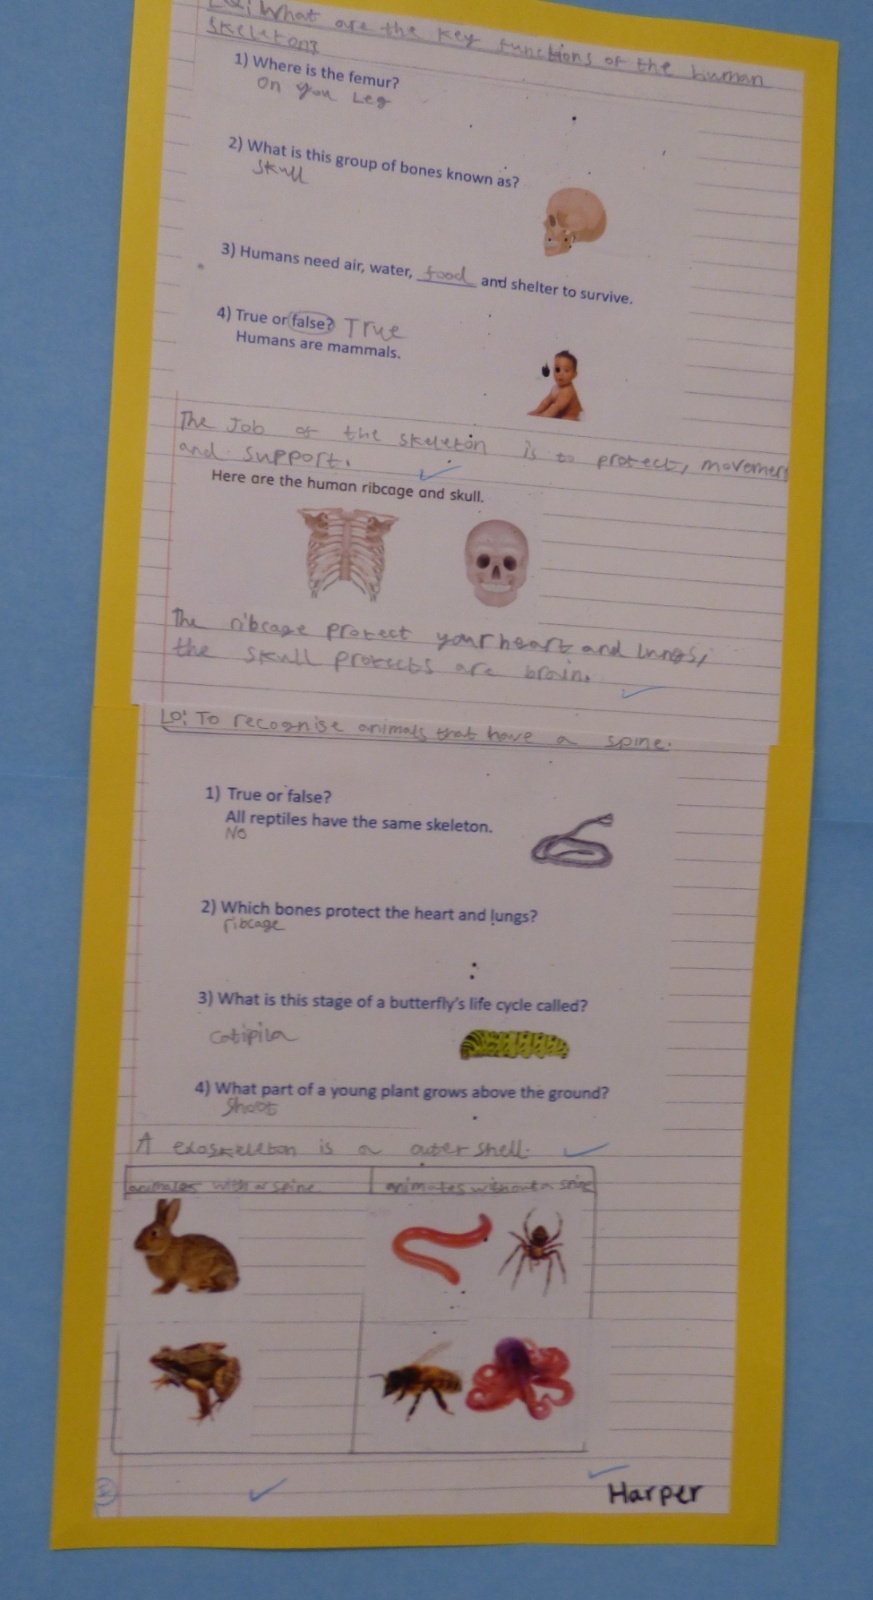 LQ: What are the key functions of the human
skeleton?
1) Where is the femur?
on you Leg
2) What is this group of bones known as?
skull
3) Humans need air, water, food and shelter to survive.
4) True or false? True
Humans are mammals.
The Job of the skeleton is to protect, movement
and support.
Here are the human ribcage and skull.
The ribcage protect your heart and lungs,
the skull protects are brain.
LO: To recognise animals that have a spine.
1) True or false?
All reptiles have the same skeleton.
No
2) Which bones protect the heart and lungs?
ribcage
3) What is this stage of a butterfly's life cycle called?
Catipila
4) What part of a young plant grows above the ground?
Shoot
A exoskeleton is a outer shell.
animales with a spine
animales without a spine
Harper